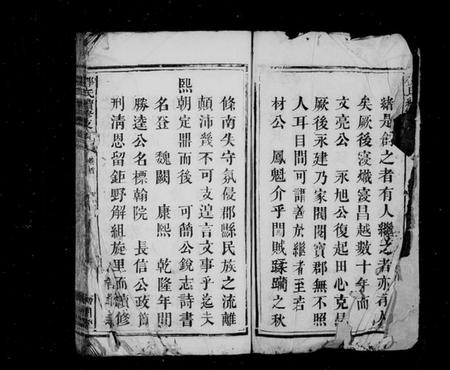 緒是創之者有人繼之者亦有人
矣厥後寖熾寖昌越數十年而
文亮公 永旭公復起田心克昌
厥後永建乃家閥閱寶郡無不照
人耳目間可謂善於繼者至若
材公 鳳魁介乎闖賊蹂躪之秋
條南失守氛侵郡縣民族之流離
顛沛幾不可支遑言文事乎迄夫
熙朝定鼎而後 可簡公銳志詩書
名登 魏闕 康熙 乾隆年間
勝逵公名標翰院 長信公政簡
刑清恩留鉅野解組旋里而續修
氏續修支
卷首